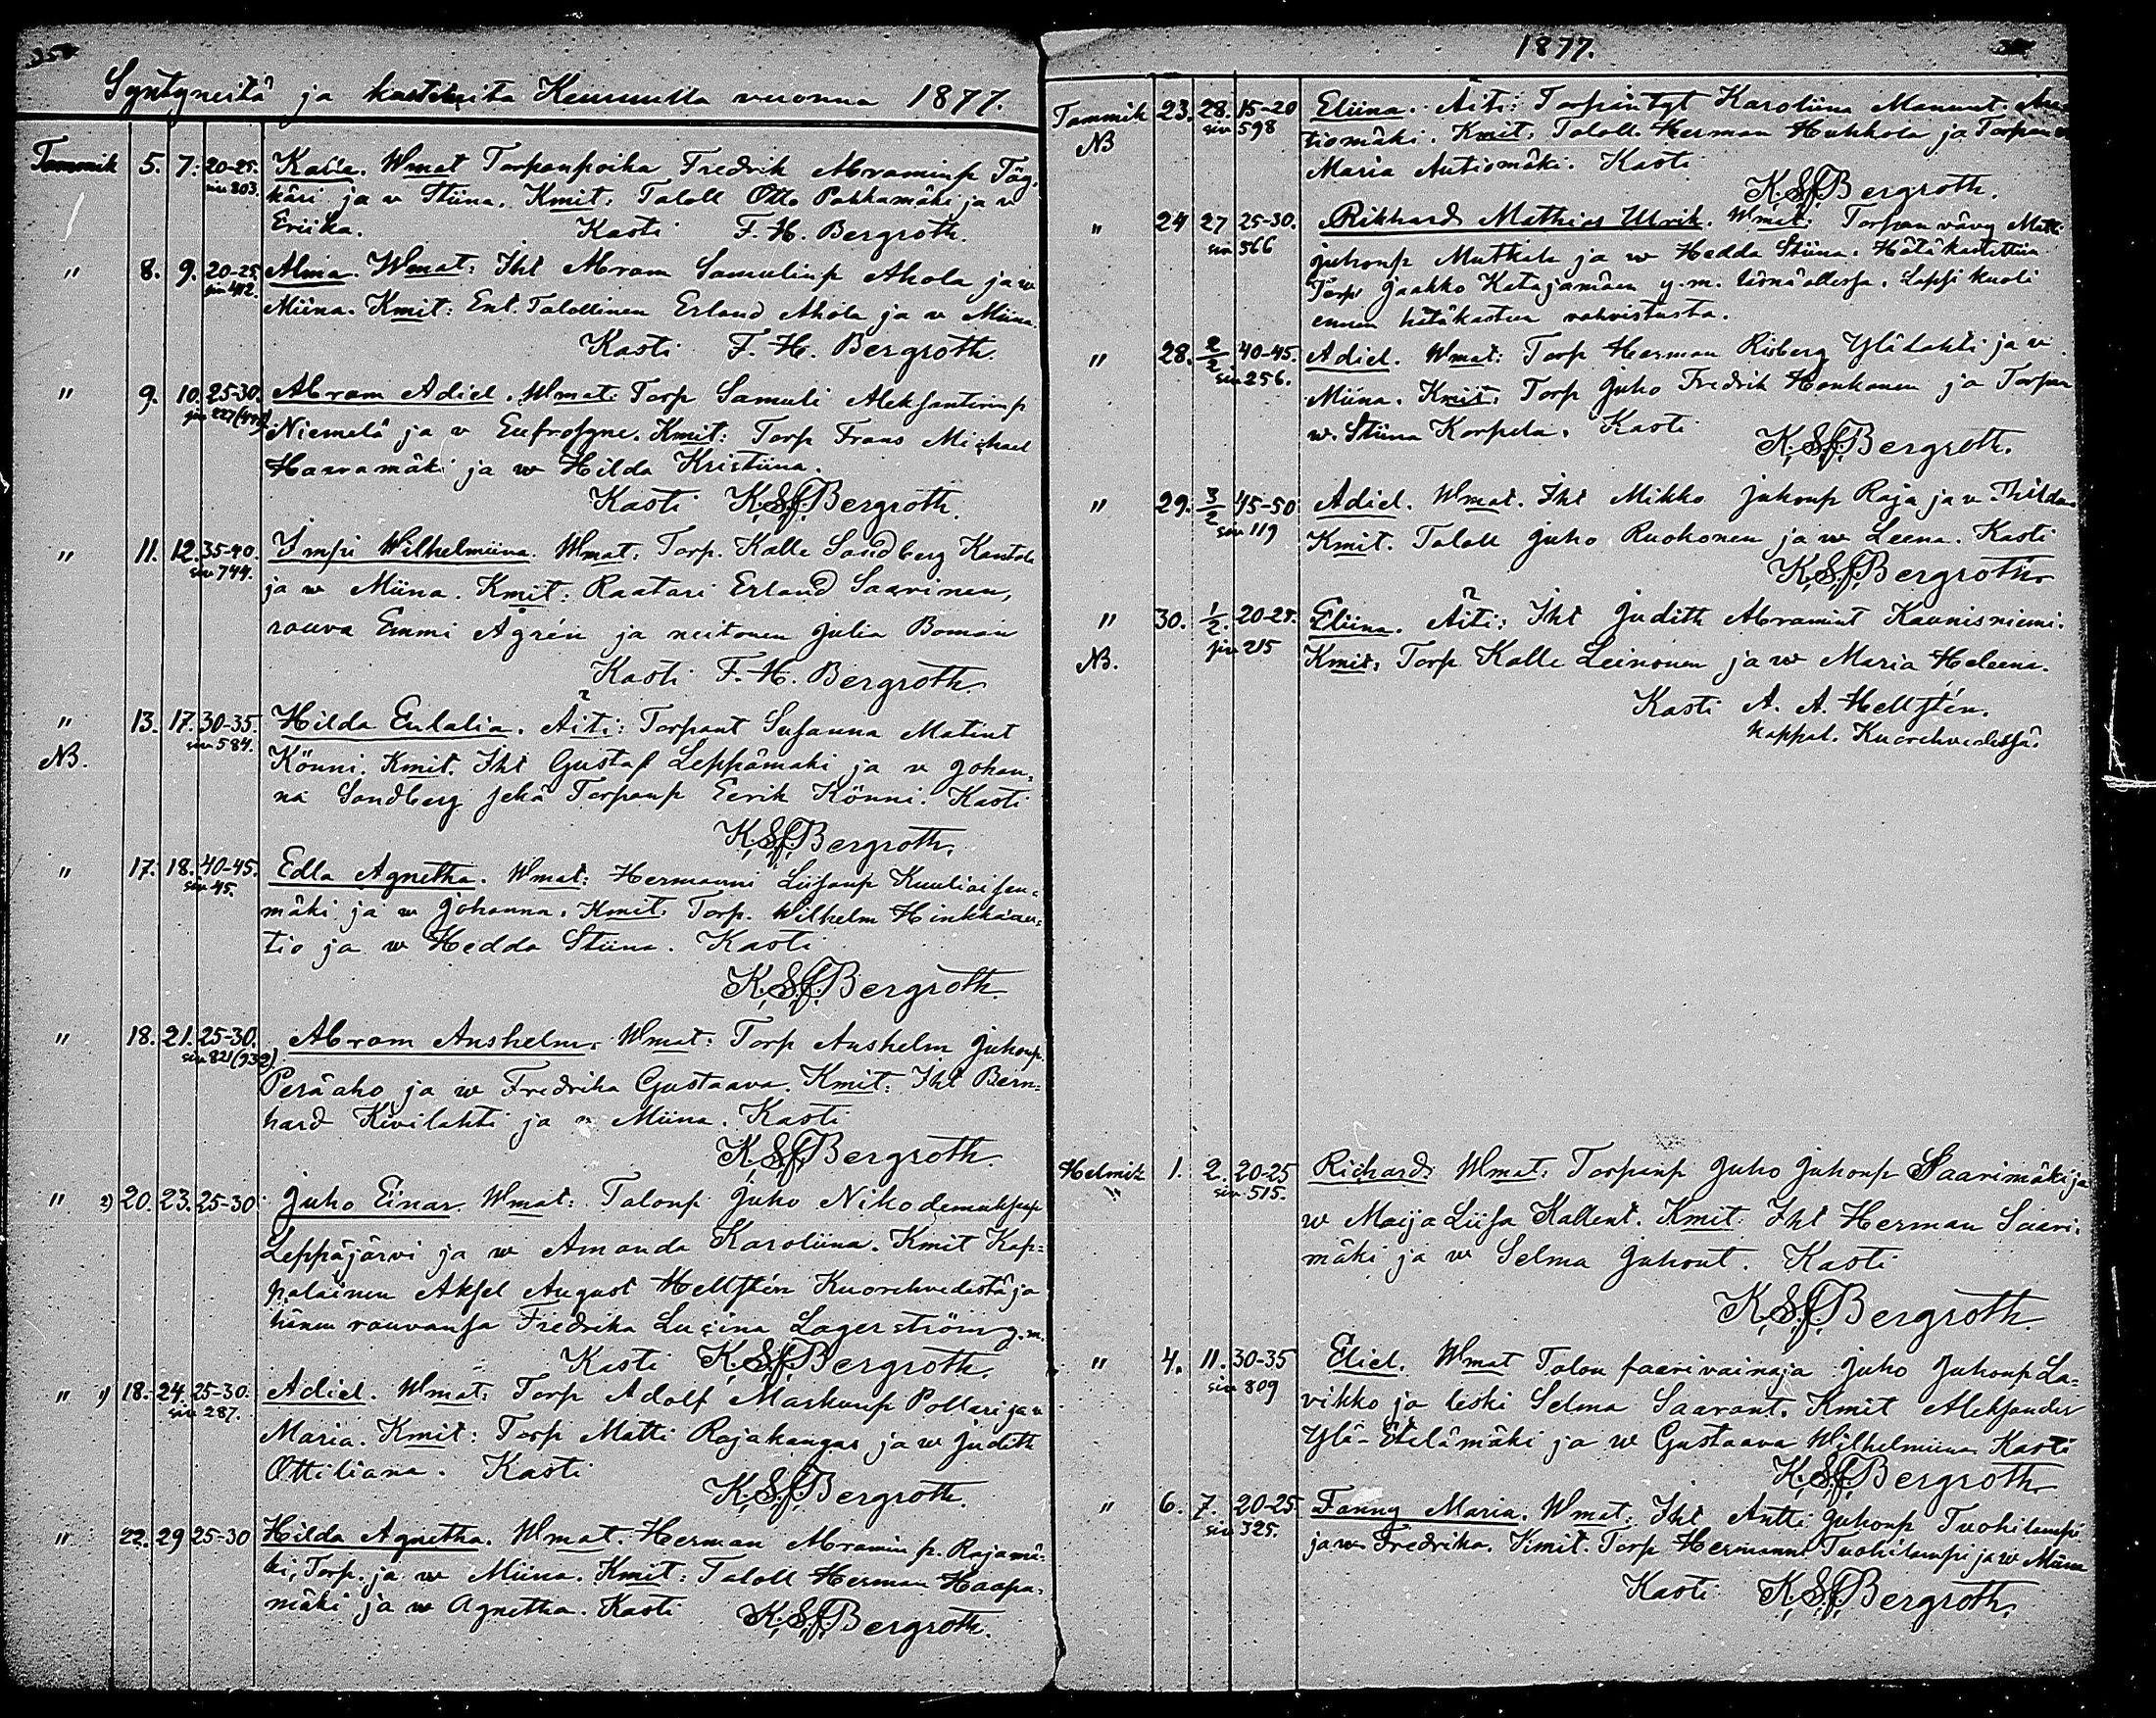 Syntyneitä ja kastetuita Keuruulla vuonna 1877.
Tammik 5. 7. 20-25. siv 803. Kalle. Wmat Torpanpoika Fredrik Abraminp Täg,
käri ja v Stiina. Kmit: Taloll Otto Pohkamäki ja v
Eriika. Kasti F. H. Bergroth.
" 8. 9. 20-25 siv 412. Alma. Wmat: Iht Abram Samulinp Ahola ja w
Miina. Kmit: Ent. Talollinen Erland Ahola ja v Miina.
Kasti F. H. Bergroth.
" 9. 10. 25-30. siv 227 Abram Adiel. Wmat: Torp Samuli Aleksanterinp
Niemelä ja v Eufrosyne. Kmit: Torp Frans Michael
Haavamäki ja w Hilda Kristiina.
Kasti K. S. J. Bergroth.
" 11. 12. 35-40. siv 744. Impi Wilhelmiina. Wmat: Torp. Kalle Sandberg Kantola
ja w Miina. Kmit: Raatari Erland Saarinen,
rouva Emmi Ågrén ja neitonen Julia Boman
Kasti F. H. Bergroth.
" 13. 17. 30-35. siv 584. Hilda Eulalia. Äiti: Torpant Susanna Matint
NB. Könni. Kmit. Iht Gustaf Leppämäki ja v Johan,
na Sandberg sekä Torpanp Eerik Könni. Kasti
K. S. J. Bergroth.
" 17. 18. 40-45. siv 45. Edla Agnetha. Wmat: Hermanni Liisanp Kuuliaisen,
mäki ja w Johanna. Kmit: Torp. Wilhelm Hinkkaau,
tio ja w Hedda Stiina. Kasti
K. S. J. Bergroth.
" 18. 21. 25-30. siv 821 (939) Abram Anshelm. Wmat: Torp Anshelm Juhonp.
Peräaho ja w Fredrika Gustaava. Kmit: Iht Bern=
hard Kivilahti ja v Miina. Kasti
K. S. J. Bergroth.
" 2) 20. 23. 25-30 Juho Einar. Wmat: Talonp Juho Nikodemuksenp
Leppäjärvi ja w Amanda Karoliina. Kmit Kap=
palainen Aksel August Hellstén Kuorehvedestä ja
hänen rouvansa Fredrika Lucina Lagerström y. m.
Kasti K. S. J. Bergroth.
" 1) 18. 24. 25-30. siv 287. Adiel. Wmat: Torp Adolf Markunp Pollari ja v
Maria. Kmit: Torp Matti Rajakangas ja w Judith
Ottiliana. Kasti
K. S. J. Bergroth.
" 22. 29 25-30 Hilda Agnetha. Wmat. Herman Abramin p. Rajamä-
ki, Torp. ja w Miina. Kmit: Taloll Herman Haapa,
mäki ja w Agnetha. Kasti K. S. J. Bergroth.
1877.
Tammik 23. 28. 15-20 siv 598 Eliina. Äiti: Torpintyt Karoliina Manunt.
NB tiomäki. Kmit. Taloll. Herman Huhkola ja Torpan
Maria Autiomäki. Kasti
K. S. J. Bergroth.
" 24 27 25-30. siv 566 Rikhard Mathias Ulrik. Wmat: Torpan vävy Matti
Juhonp Mutkala ja w Hedda Stiina. Hätäkastettiin
Torp. Jaakko Katajamäen y. m. läsnä ollessa. Lapsi kuoli
ennen hätäkasteen vahvistusta.
" 28. 2/2 40-45. siv 256. Adiel. Wmat: Torp Herman Risberg Ylälahti ja v.
Miina. Kmit: Torp Juho Fredrik Honkanen ja Torpan
w. Stiina Korpela. Kasti
K. S. J. Bergroth.
" 29. 3/2 45-50 siv 119 Adiel. Wmat. Iht Mikko Juhonp Raja ja v Thilda
Kmit. Taloll Juho Ruokonen ja w Leena. Kasti
K. S. J. Bergroth.
" 30. 1/2. 20-25. siv 215 Eliina. Äiti: Iht Judith Abramint Kaunisniemi.
NB. Kmit: Torp Kalle Leinonen ja w Maria Heleena.
Kasti A. A. Hellstén.
Kappal. Kuorehvedessä.
Helmik 1. 2. 20-25 siv 515. Richard. Wmat: Torpanp Juho Juhonp Saarimäki ja
w Maija Liisa Kallent. Kmit: Iht Herman Saari,
mäki ja w Selma Juhont. Kasti
K. S. J. Bergroth.
" 4. 11. 30-35 siv 809 Eliel. Wmat Talon saarivainaja Juho Juhonp La=
vikko ja leski Selma Saarant. Kmit Aleksander
Ylä-Etelämäki ja w Gustaava Wilhelmiina Kasti
K. S. J. Bergroth.
" 6. 7. 20-25 siv 325. Fanny Maria. Wmat: Iht Antti Juhonp Tuohilampi
ja w Fredrika. Kmit. Torp Hermanni Tuohilampi ja w Miina
Kasti K. S. J. Bergroth.